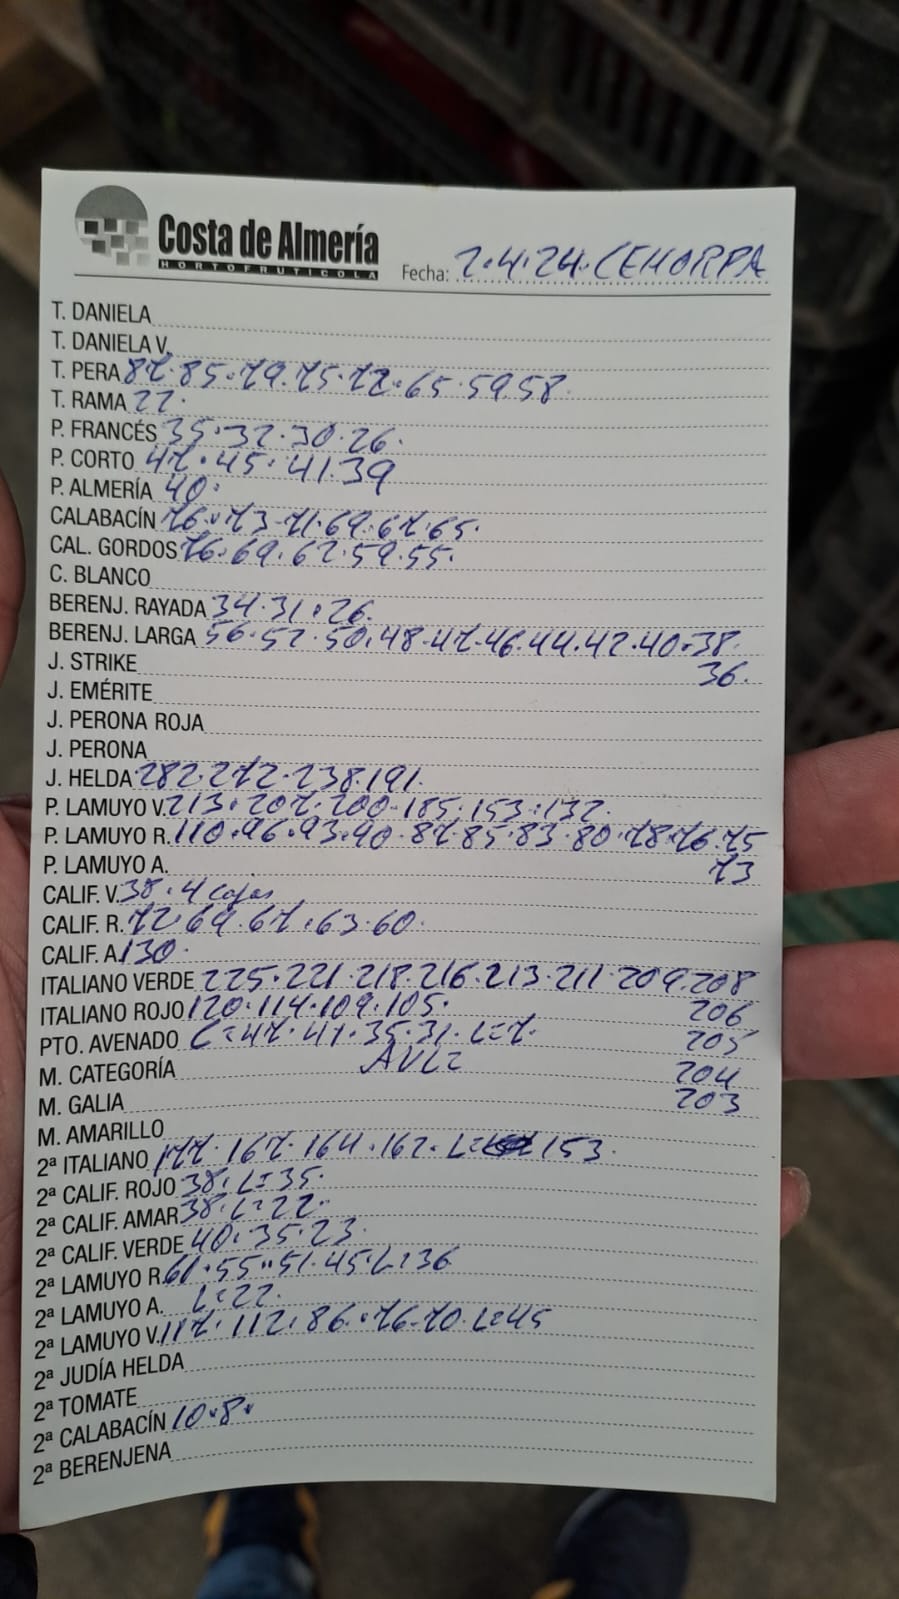 Costa de Almería
HORTOFRUTICOLA
Fecha: 2.4.24. CEHORPA
T. DANIELA
T. DANIELA V.
T. PERA 87.85.79.75.72.65.59.58
T. RAMA 22.
P. FRANCÉS 35.32.30.26.
P. CORTO 47.45.41.39
P. ALMERÍA 40.
CALABACÍN 76.73-71.69.67.65.
CAL. GORDOS 76.69.62.59.55.
C. BLANCO
BERENJ. RAYADA 34.31.26.
BERENJ. LARGA 56.52.50.48.47.46.44.42.40.38.
J. STRIKE 36.
J. EMÉRITE
J. PERONA ROJA
J. PERONA
J. HELDA 282.272.238.191.
P. LAMUYO V. 213.207.200-185.153.132.
P. LAMUYO R. 110.96.93.90.87.85.83.80.78.76.75
P. LAMUYO A. 73
CALIF. V. 38.4 cajas
CALIF. R. 72.69.67.63.60.
CALIF. A 130.
ITALIANO VERDE 225.221.218.216.213.211.209.208
ITALIANO ROJO 120.114.109.105. 206
PTO. AVENADO C=47.41.35.31.L=7. 205
M. CATEGORÍA 204
M. GALIA 203
M. AMARILLO
2ª ITALIANO 177.167.164.162.L= 153.
2ª CALIF. ROJO 38.L=35.
2ª CALIF. AMAR 38.L=22.
2ª CALIF. VERDE 40.35.23.
2ª LAMUYO R. 61.55.51.45.L=36
2ª LAMUYO A. L=22.
2ª LAMUYO V. 117.112.86.76-70.L=45
2ª JUDÍA HELDA
2ª TOMATE
2ª CALABACÍN 10.8.
2ª BERENJENA